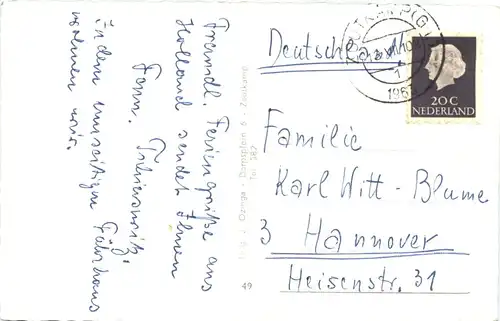 Freundl. Feriengrüße aus
Holland sendet Ihnen
Fam.
In dem umseitigen Fährhaus
wohnen wir.
J. Ozinga - Damsplein 8 - Zoutkamp
Tel. 582
49
Deutschland
ZOUTKAMP (GR)
1
196
20 C
NEDERLAND
Familie
Karl Witt - Blume
3 Hannover
Heisenstr. 31